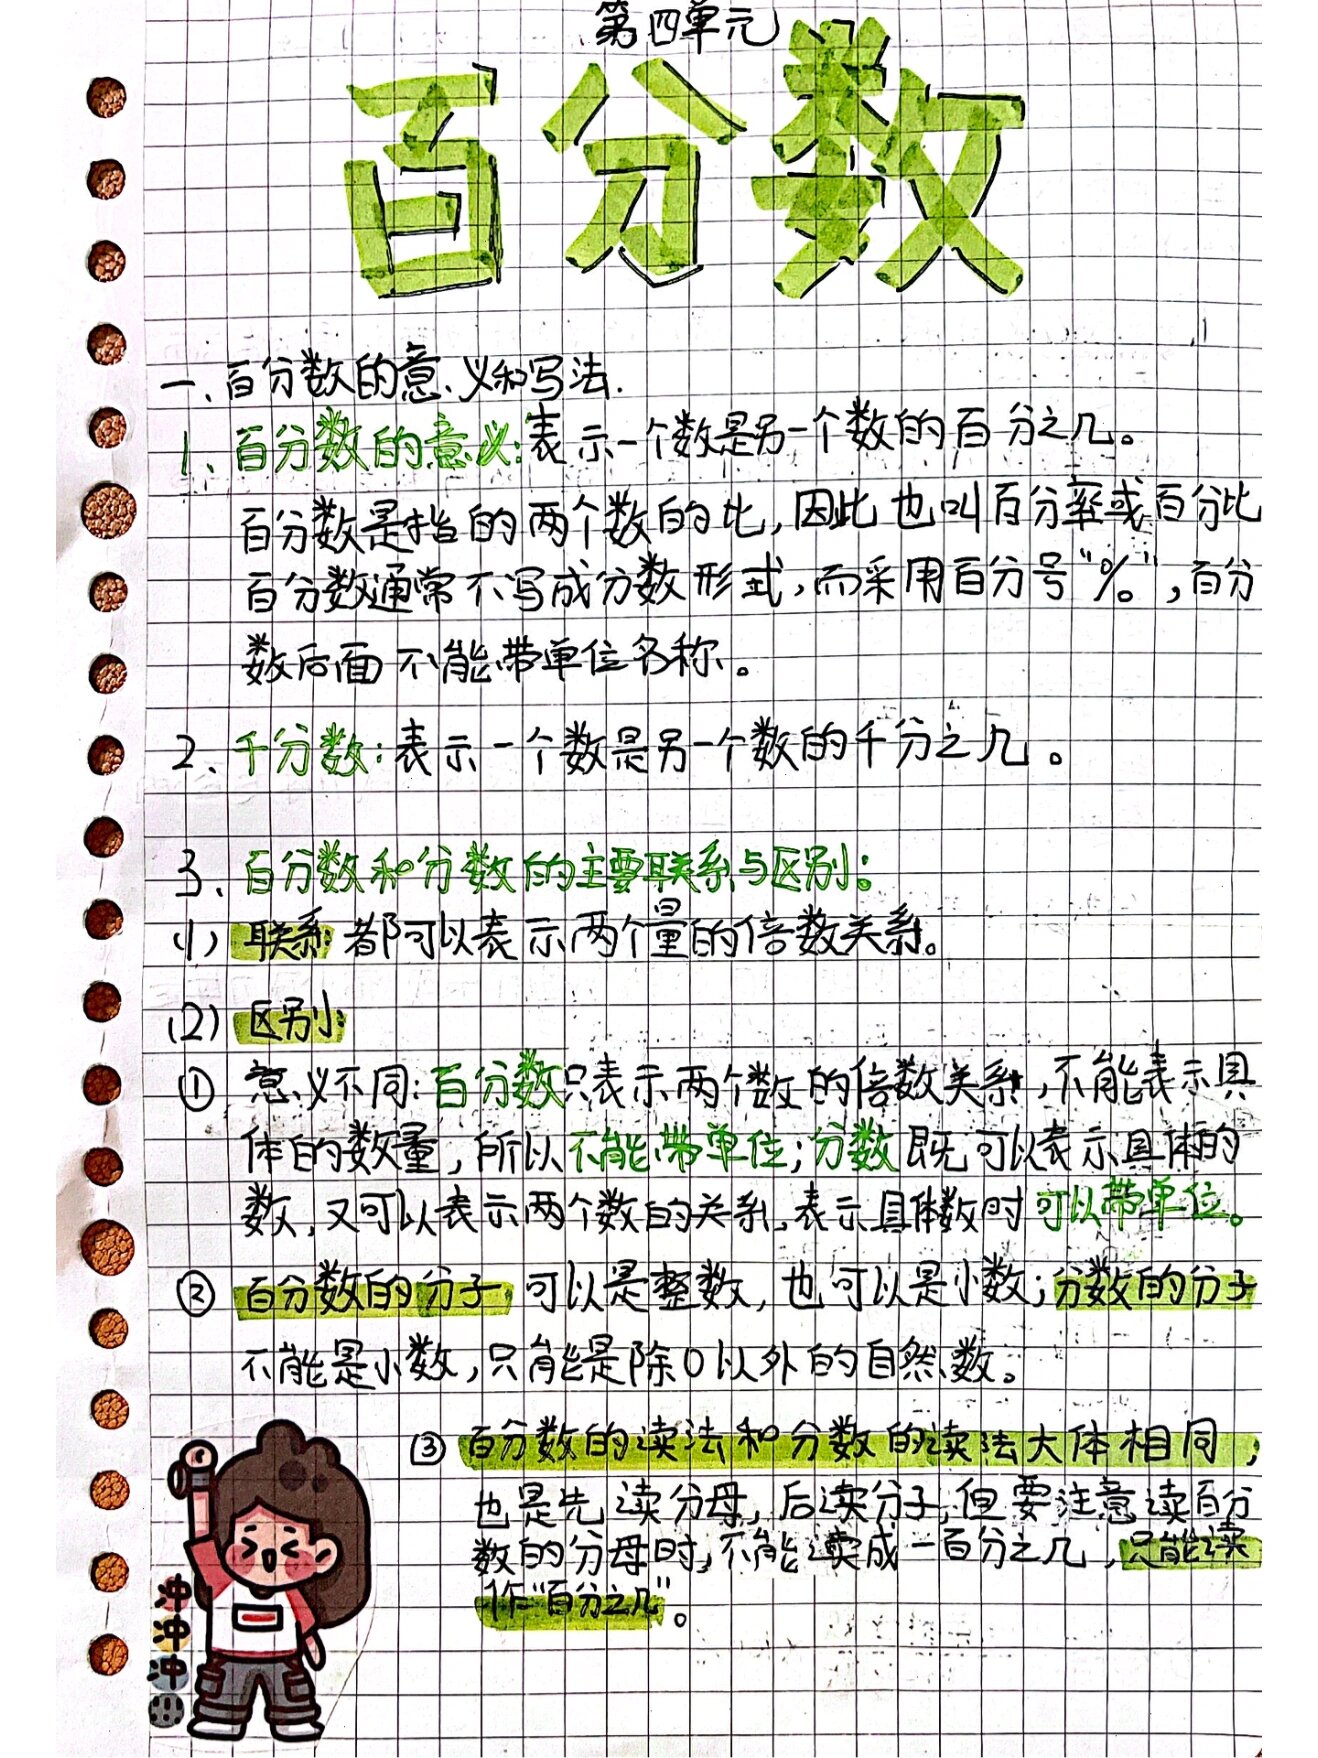 第四单元
百分数
一、百分数的意义和写法.
1、百分数的意义:表示一个数是另一个数的百分之几。
百分数是指的两个数的比,因此也叫百分率或百分比
百分数通常不写成分数形式,而采用百分号“%”,百分
数后面不能带单位名称。
2、千分数:表示一个数是另一个数的千分之几。
3、百分数和分数的主要联系与区别:
(1)联系:都可以表示两个量的倍数关系。
(2)区别:
① 意义不同:百分数只表示两个数的倍数关系,不能表示具
体的数量,所以不能带单位;分数既可以表示具体的
数,又可以表示两个数的关系,表示具体数时可以带单位。
② 百分数的分子可以是整数,也可以是小数;分数的分子
不能是小数,只能是除0以外的自然数。
③ 百分数的读法和分数的读法大体相同,
也是先读分母,后读分子,但要注意读百分
数的分母时,不能读成一百分之几,只能读
作“百分之几”。
冲
冲
冲
!!!